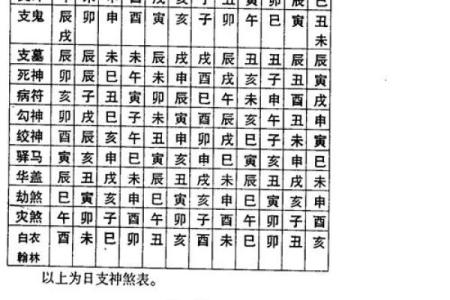 支鬼 辰 卯 申 酉 寅 亥 子 卯 辰 巳 寅 丑
戌 未
支墓 辰 辰 未 未 辰 戌 戌 辰 丑 丑 辰 戌
死神 卯 辰 巳 午 未 申 酉 戌 亥 子 丑 寅
病符 亥 子 丑 寅 卯 辰 巳 午 未 申 酉 戌
勾神 卯 戌 巳 子 未 寅 酉 辰 亥 午 丑 申
绞神 酉 辰 亥 午 丑 申 卯 戌 巳 子 未 寅
驿马 寅 亥 申 巳 寅 亥 申 巳 寅 亥 申 巳
华盖 辰 丑 戌 未 辰 丑 戌 未 辰 丑 戌 未
劫煞 巳 寅 亥 申 巳 寅 亥 申 巳 寅 亥 申
灾煞 午 卯 子 酉 午 卯 子 酉 午 卯 子 酉
白衣 酉 未 巳 卯 丑 亥 酉 未 巳 卯 丑 亥
翰林
以上为日支神煞表。